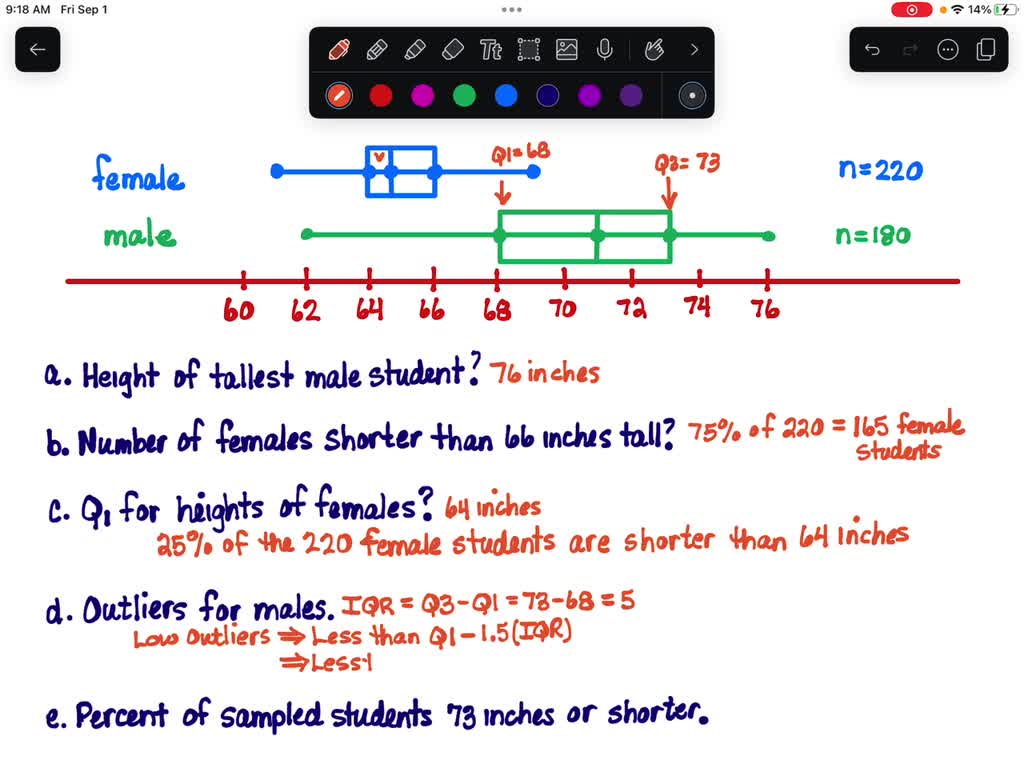 9:18 AM Fri Sep 1
14%
Tt
female
Q1=68
Q3=73
n=220
male
n=180
60 62 64 66 68 70 72 74 76
a. Height of tallest male student? 76 inches
b. Number of females shorter than 66 inches tall? 75% of 220 = 165 female
students
c. Q1 for heights of females? 64 inches
25% of the 220 female students are shorter than 64 inches
d. Outliers for males. IQR = Q3-Q1 = 73-68 = 5
Low Outliers ⇒ Less than Q1-1.5(IQR)
⇒ Less
e. Percent of sampled students 73 inches or shorter.